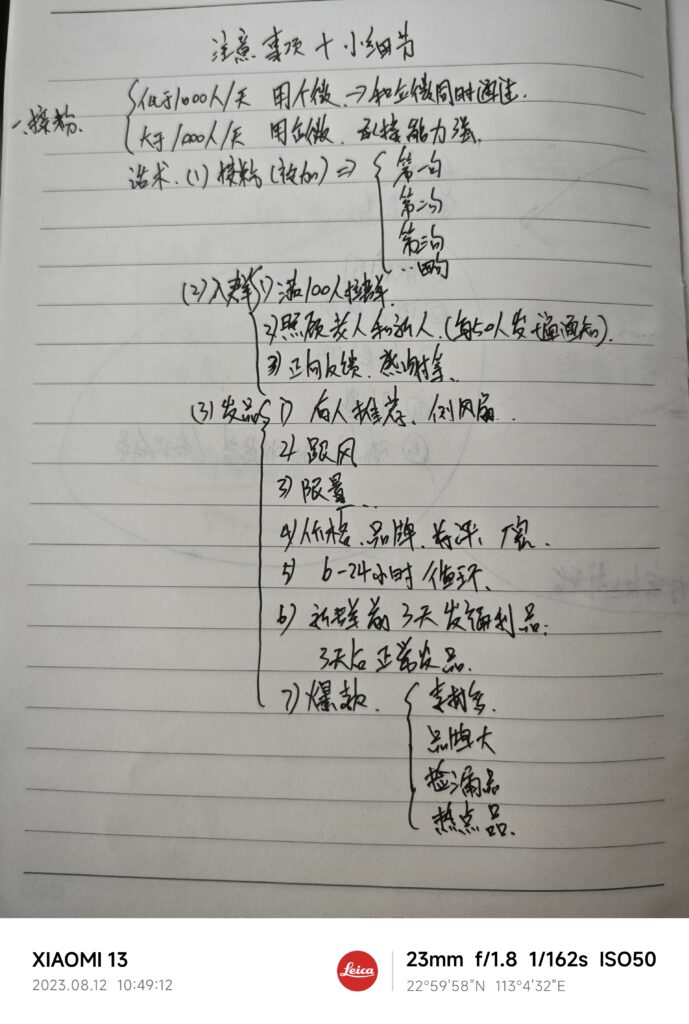 注意事项+小细节
一、接粉.
低于1000人/天 用个微.→和企微同时通过.
大于1000人/天 用企微. 承接能力强.
话术.(1)接粉(被加)⇒
第一句
第二句
第三句
…四句
(2)入群 1)满100人换群.
2)照顾老人和新人.(每50人发一遍通知).
3)正向反馈.感谢等.
(3)发品 1) 有人推荐、例风扇..
2) 跟风
3) 限量...
4) 价格.品牌.专注.
5) 6-24小时循环.
6) 新群前3天发福利品;
3天后正常发品.
7) 爆款.
品牌大
捡漏品
热点品.
XIAOMI 13
2023.08.12 10:49:12
Leica
23mm f/1.8 1/162s ISO50
22°59'58"N 113°4'32"E